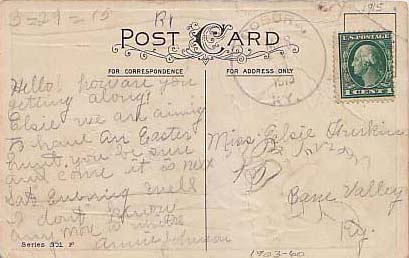 3=29=15
R1
1915
POST CARD
FOR CORRESPONDENCE
FOR ADDRESS ONLY
U.S. POSTAGE
1 CENT 1
KY.
Hello! how are you
getting along!
Elsie we are aiming
to have an Easter
hunt. you be sure
and come it is next
Sat. Evening well
I don't know
any more to write
Annie Johnson
Miss Elsie
Bane Valley
Ky.
Series 331 F
1903-60